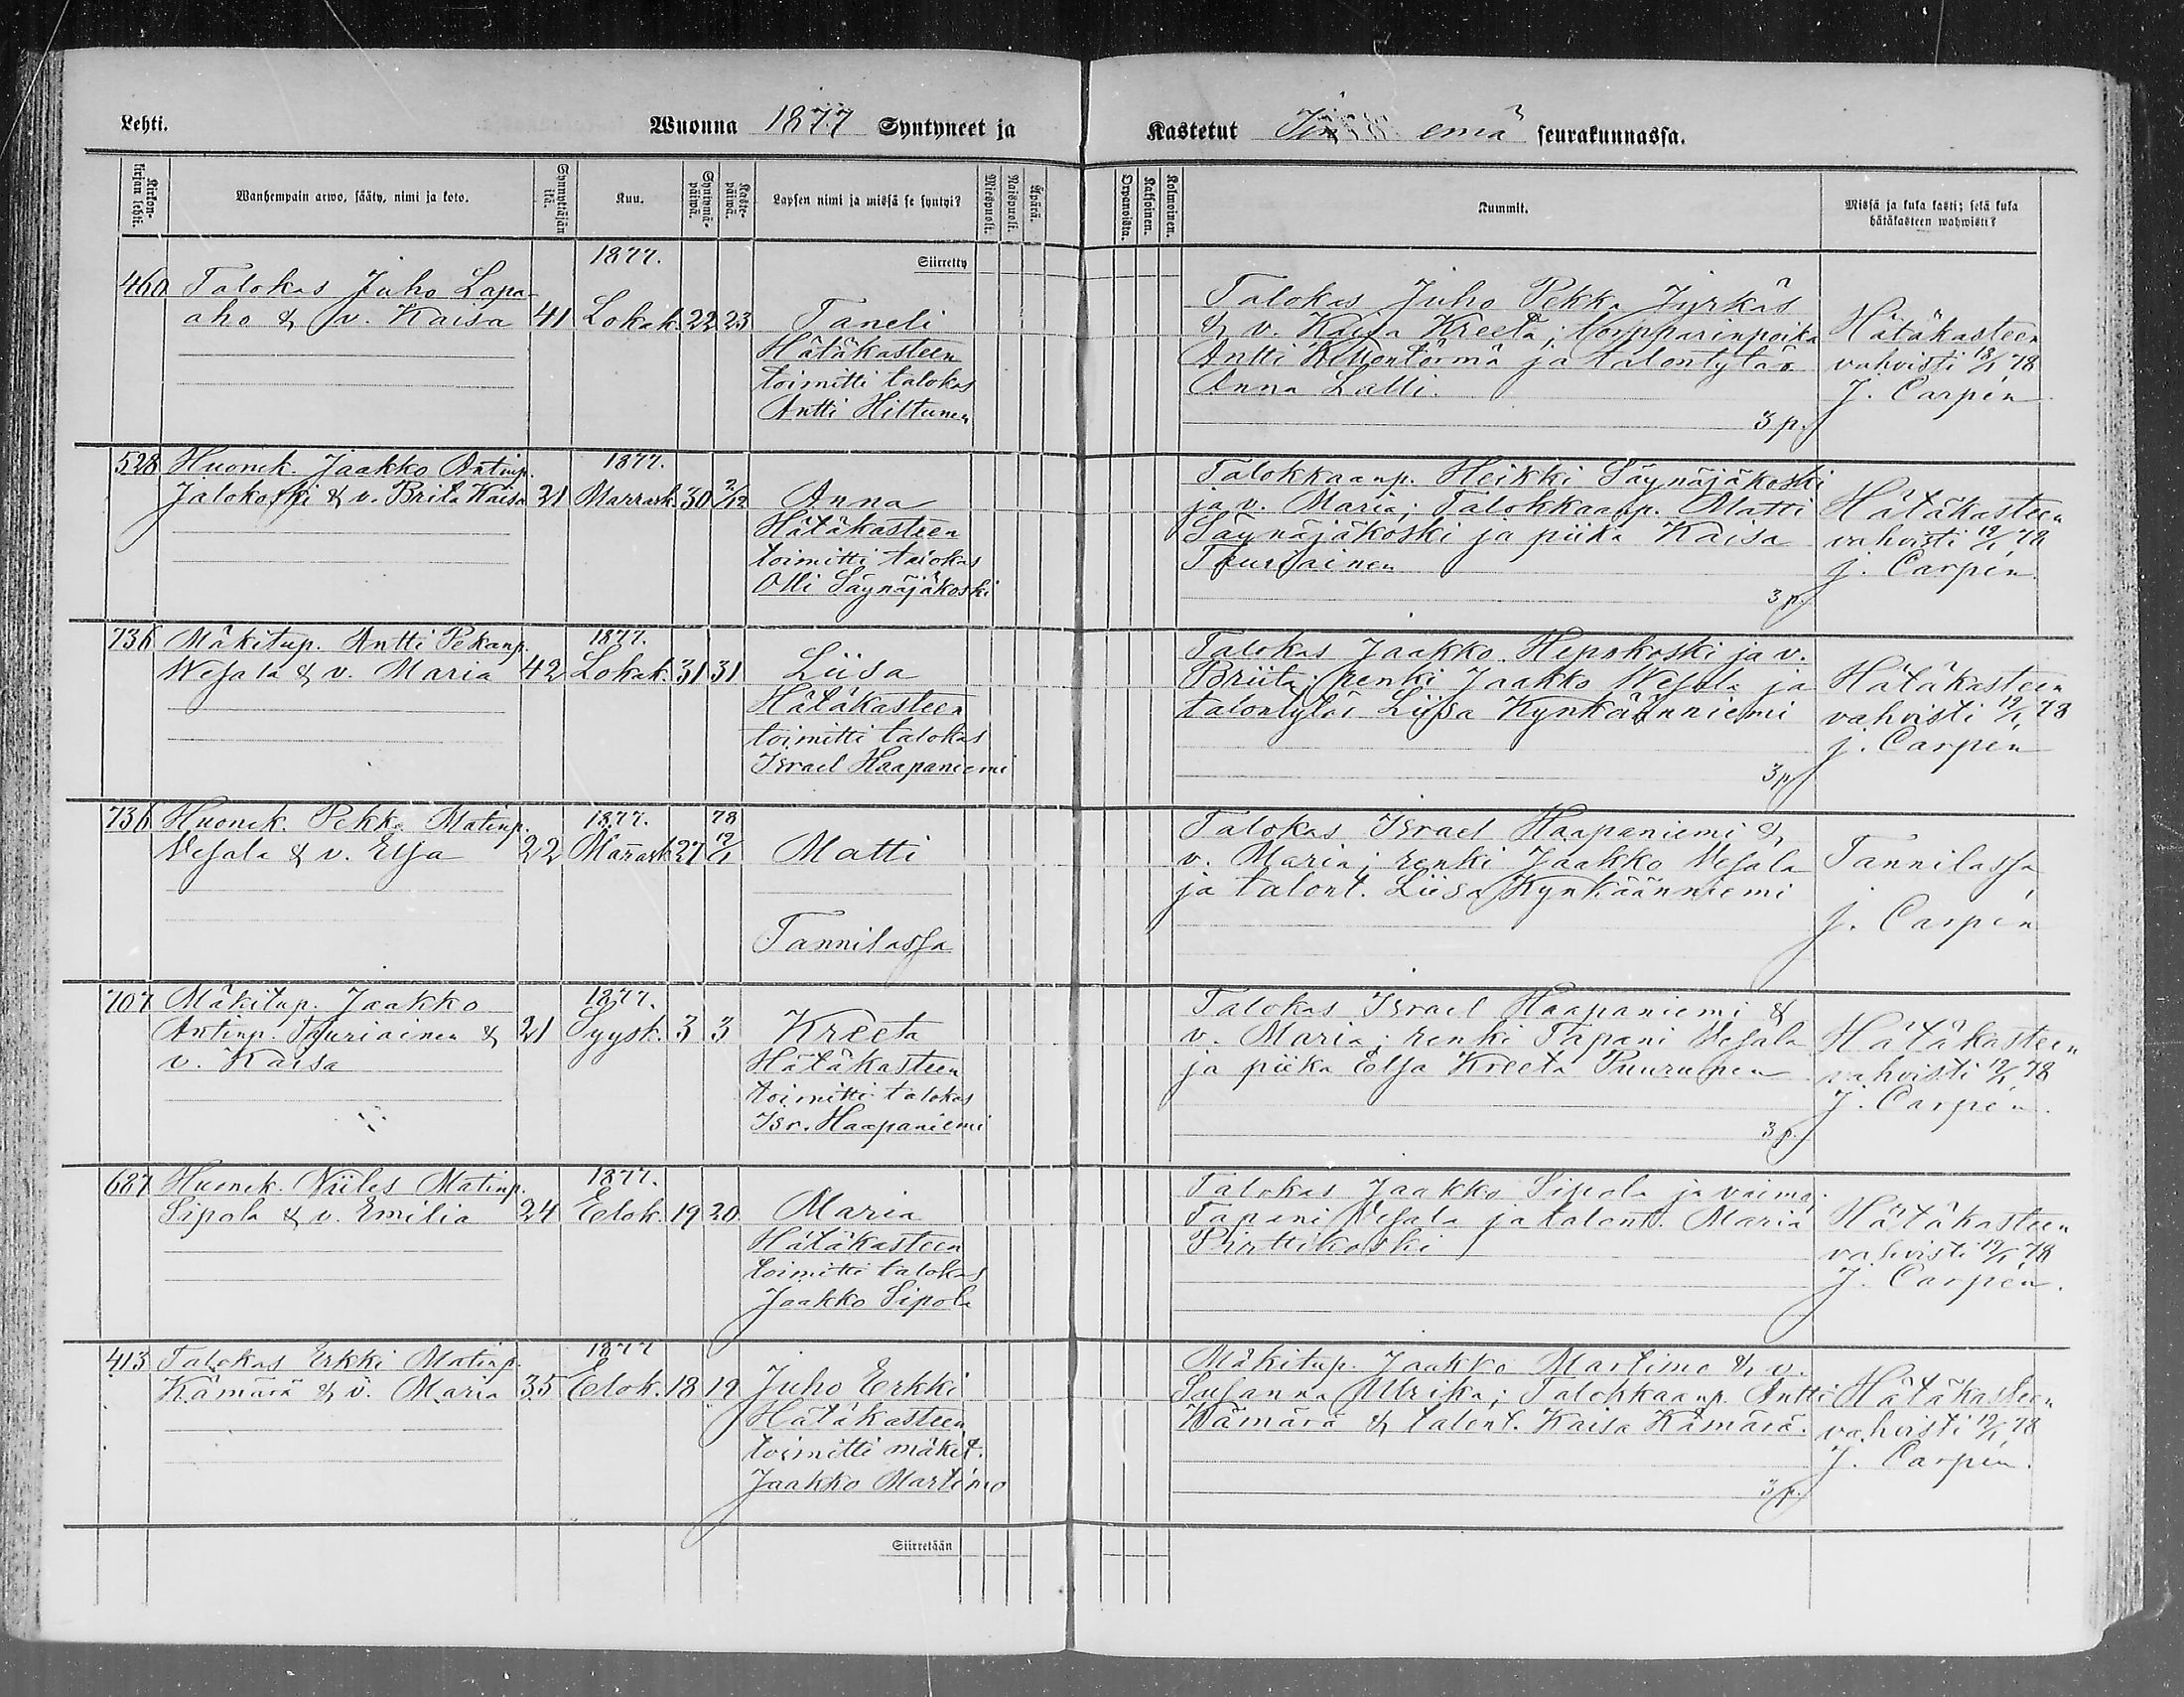 Lehti.
Wuonna 1877 Syntyneet ja
Kastetut emä seurakunnassa.
Kirkon-kirjan lehti.
Wanhempain arwo, sääty, nimi ja koto.
Synnyttäjän ikä.
Kuu.
Syntymä-päiwä.
Kaste-päiwä.
Lapsen nimi ja missä se syntyi?
Miespuoli.
Naispuoli.
Äpärä.
Orpanoista.
Kaksoinen.
Kolmoinen.
Kummit.
Missä ja kuka kasti; sekä kuka
hätäkasteen wahwisti?
Siirretty
460 Talokas Juho Lapa-
aho & v. Kaisa 41
1877.
Lokak. 22 23 Taneli
Hätäkasteen
toimitti talokas
Antti Hiltunen
Talokas Juho Pekka Jyrkäs
& v. Kaisa Kreeta; torpparinpoika
Antti ja talontytär
Anna Lalli.
3 p.
Hätäkasteen
vahvisti 18/1 78
J. Carpén
528 Huonek. Jaakko Antinp.
Jalokoski & v. Brita Kaisa 21
1877.
Marrask. 30 2/12 Anna
Hätäkasteen
toimitti talokas
Olli Säynäjäkoski
Talokkaanp. Heikki Säynäjäkoski
ja v. Maria; Talokkaanp. Matti
Säynäjäkoski ja piika Kaisa
Tauriainen
3 p.
Hätäkasteen
vahvisti 19/1 78
J. Carpén
736 Mäkitup. Antti Pekanp.
Wesala & v. Maria 42
1877.
Lokak. 31 31 Liisa
Hätäkasteen
toimitti talokas
Israel Haapaniemi
Talokas Jaakko Hepokoski ja v.
Briita; renki Jaakko Wesala ja
talontytär Liisa Kynkäänniemi
3 p
Hätäkasteen
vahvisti 19/1 78
J. Carpén
736 Huonek. Pekka Matinp.
Vesala & v. Elsa 22
1877.
Marrask 27 78 19/1 Matti
Tannilassa
Talokas Israel Haapaniemi &
v. Maria; renki Jaakko Vesala
ja talont. Liisa Kynkäänniemi
Tannilassa
J. Carpén
707 Mäkitup. Jaakko
Antinp. Tauriainen & 21
v. Kaisa
1877.
Syysk. 3 3 Kreeta
Hätäkasteen
toimitti talokas
Isr. Haapaniemi
Talokas Israel Haapaniemi &
v. Maria; renki Tapani Vesala
ja piika Elsa Kreeta Puurunen
3 p.
Hätäkasteen
vahvisti 19/1 78
J. Carpén.
687 Huonek. Niiles Matinp.
Sipola & v. Emilia 24
1877.
Elok. 19 20 Maria
Hätäkasteen
toimitti talokas
Jaakko Sipola
Talokas Jaakko Sipola ja vaimo.
Tapani Vesala ja talont. Maria
Pirttikoski
Hätäkasteen
vahvisti 19/1 78
J. Carpén.
413 Talokas Erkki Matinp.
Kämärä & v. Maria 35
1877
Elok. 18 19 Juho Erkki
Hätäkasteen
toimitti mäkit.
Jaakko Martimo
Mäkitup. Jaakko Martimo & v.
Susanna Ulrika; Talokkaanp. Antti
Kämärä & talont. Kaisa Kämärä.
3 p.
Hätäkasteen
vahvisti 19/1 78
J. Carpén.
Siirretään